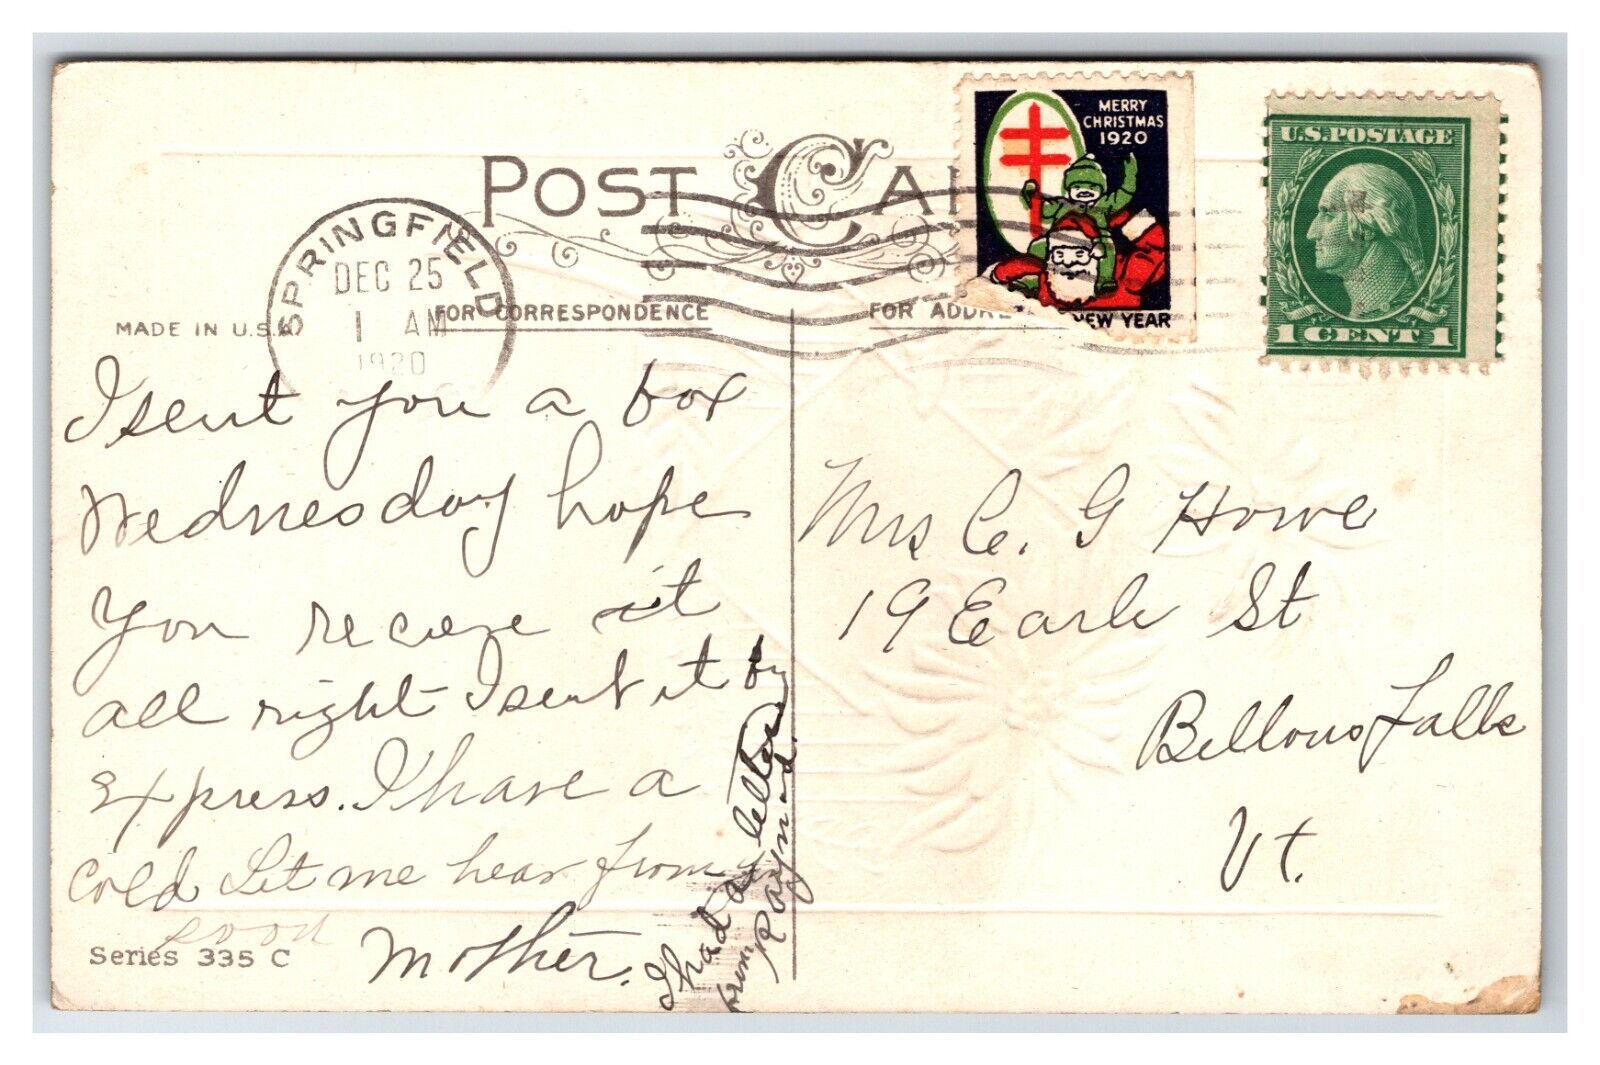 POST CA
MERRY
CHRISTMAS
1920
EW YEAR
U.S. POSTAGE
1 CENT 1
SPRINGFIELD
DEC 25
1 AM
1920
MADE IN U.S.A
FOR CORRESPONDENCE
FOR ADDRE
I sent you a box
Wednesday hope
You recieve it
all right I sent it by
Express. I have a
cold Let me hear from
soon
Mother.
I had a letter
from Raymond.
Series 335 C
Mrs C. G Howe
19 Earle St
Bellows Falls
Vt.